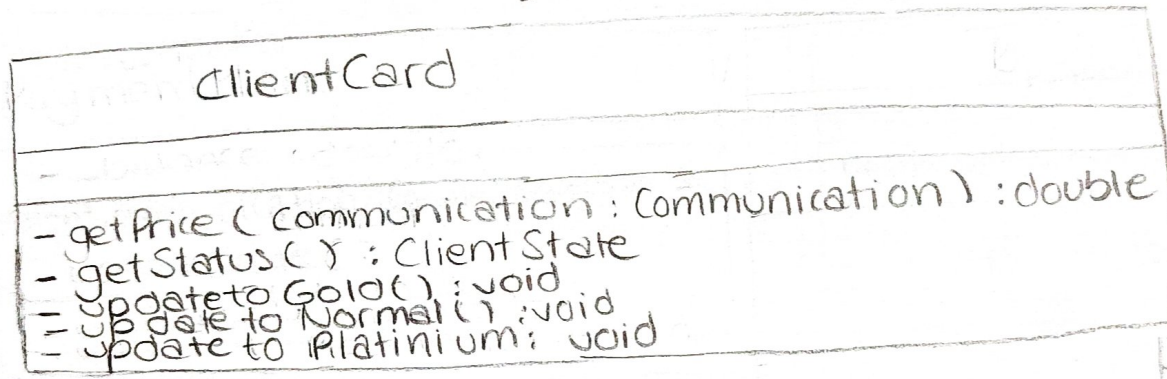 ClientCard
-
- getPrice(communication : Communication) : double
- getStatus() : ClientState
- updateto Gold() : void
- update to Normal() : void
- update to Platinium : void